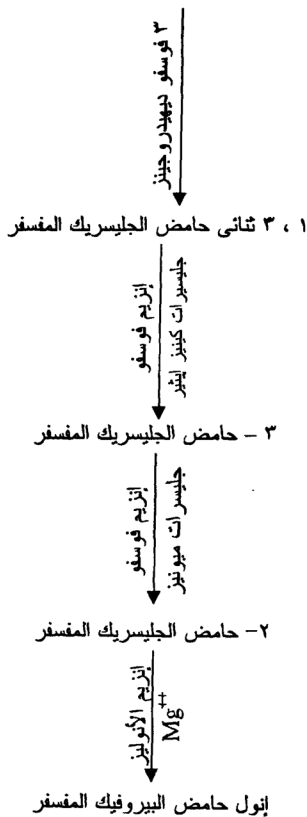 ٣ فوسفو ديهيدروجينز
١ ، ٣ ثنائى حامض الجليسريك المفسفر
إنزيم فوسفو
جليسيرات كينيز إيثير
٣ – حامض الجليسريك المفسفر
إنزيم فوسفو
جليسرات ميونيز
٢– حامض الجليسريك المفسفر
إنزيم الأنوليز
Mg++
إنول حامض البيروفيك المفسفر